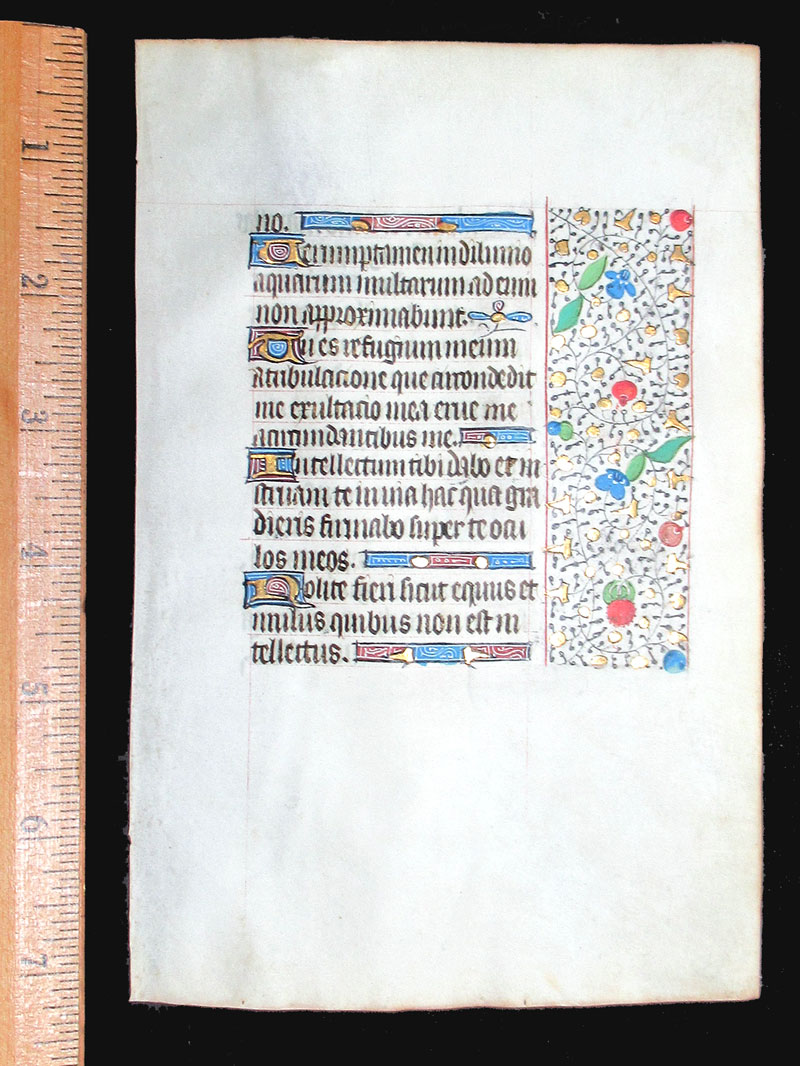 1
2
3
4
5
6
7
no.
Verumptamen in diluuio
aquarum multarum ad eum
non approximabunt.
Tu es refugium meum
a tribulacione que circondedit
me exultacio mea erue me
a circundantibus me.
Intellectum tibi dabo et in
struam te in uia hac qua gra
dieris firmabo super te ocu
los meos.
Nolite fieri sicut equus et
mulus quibus non est in
tellectus.